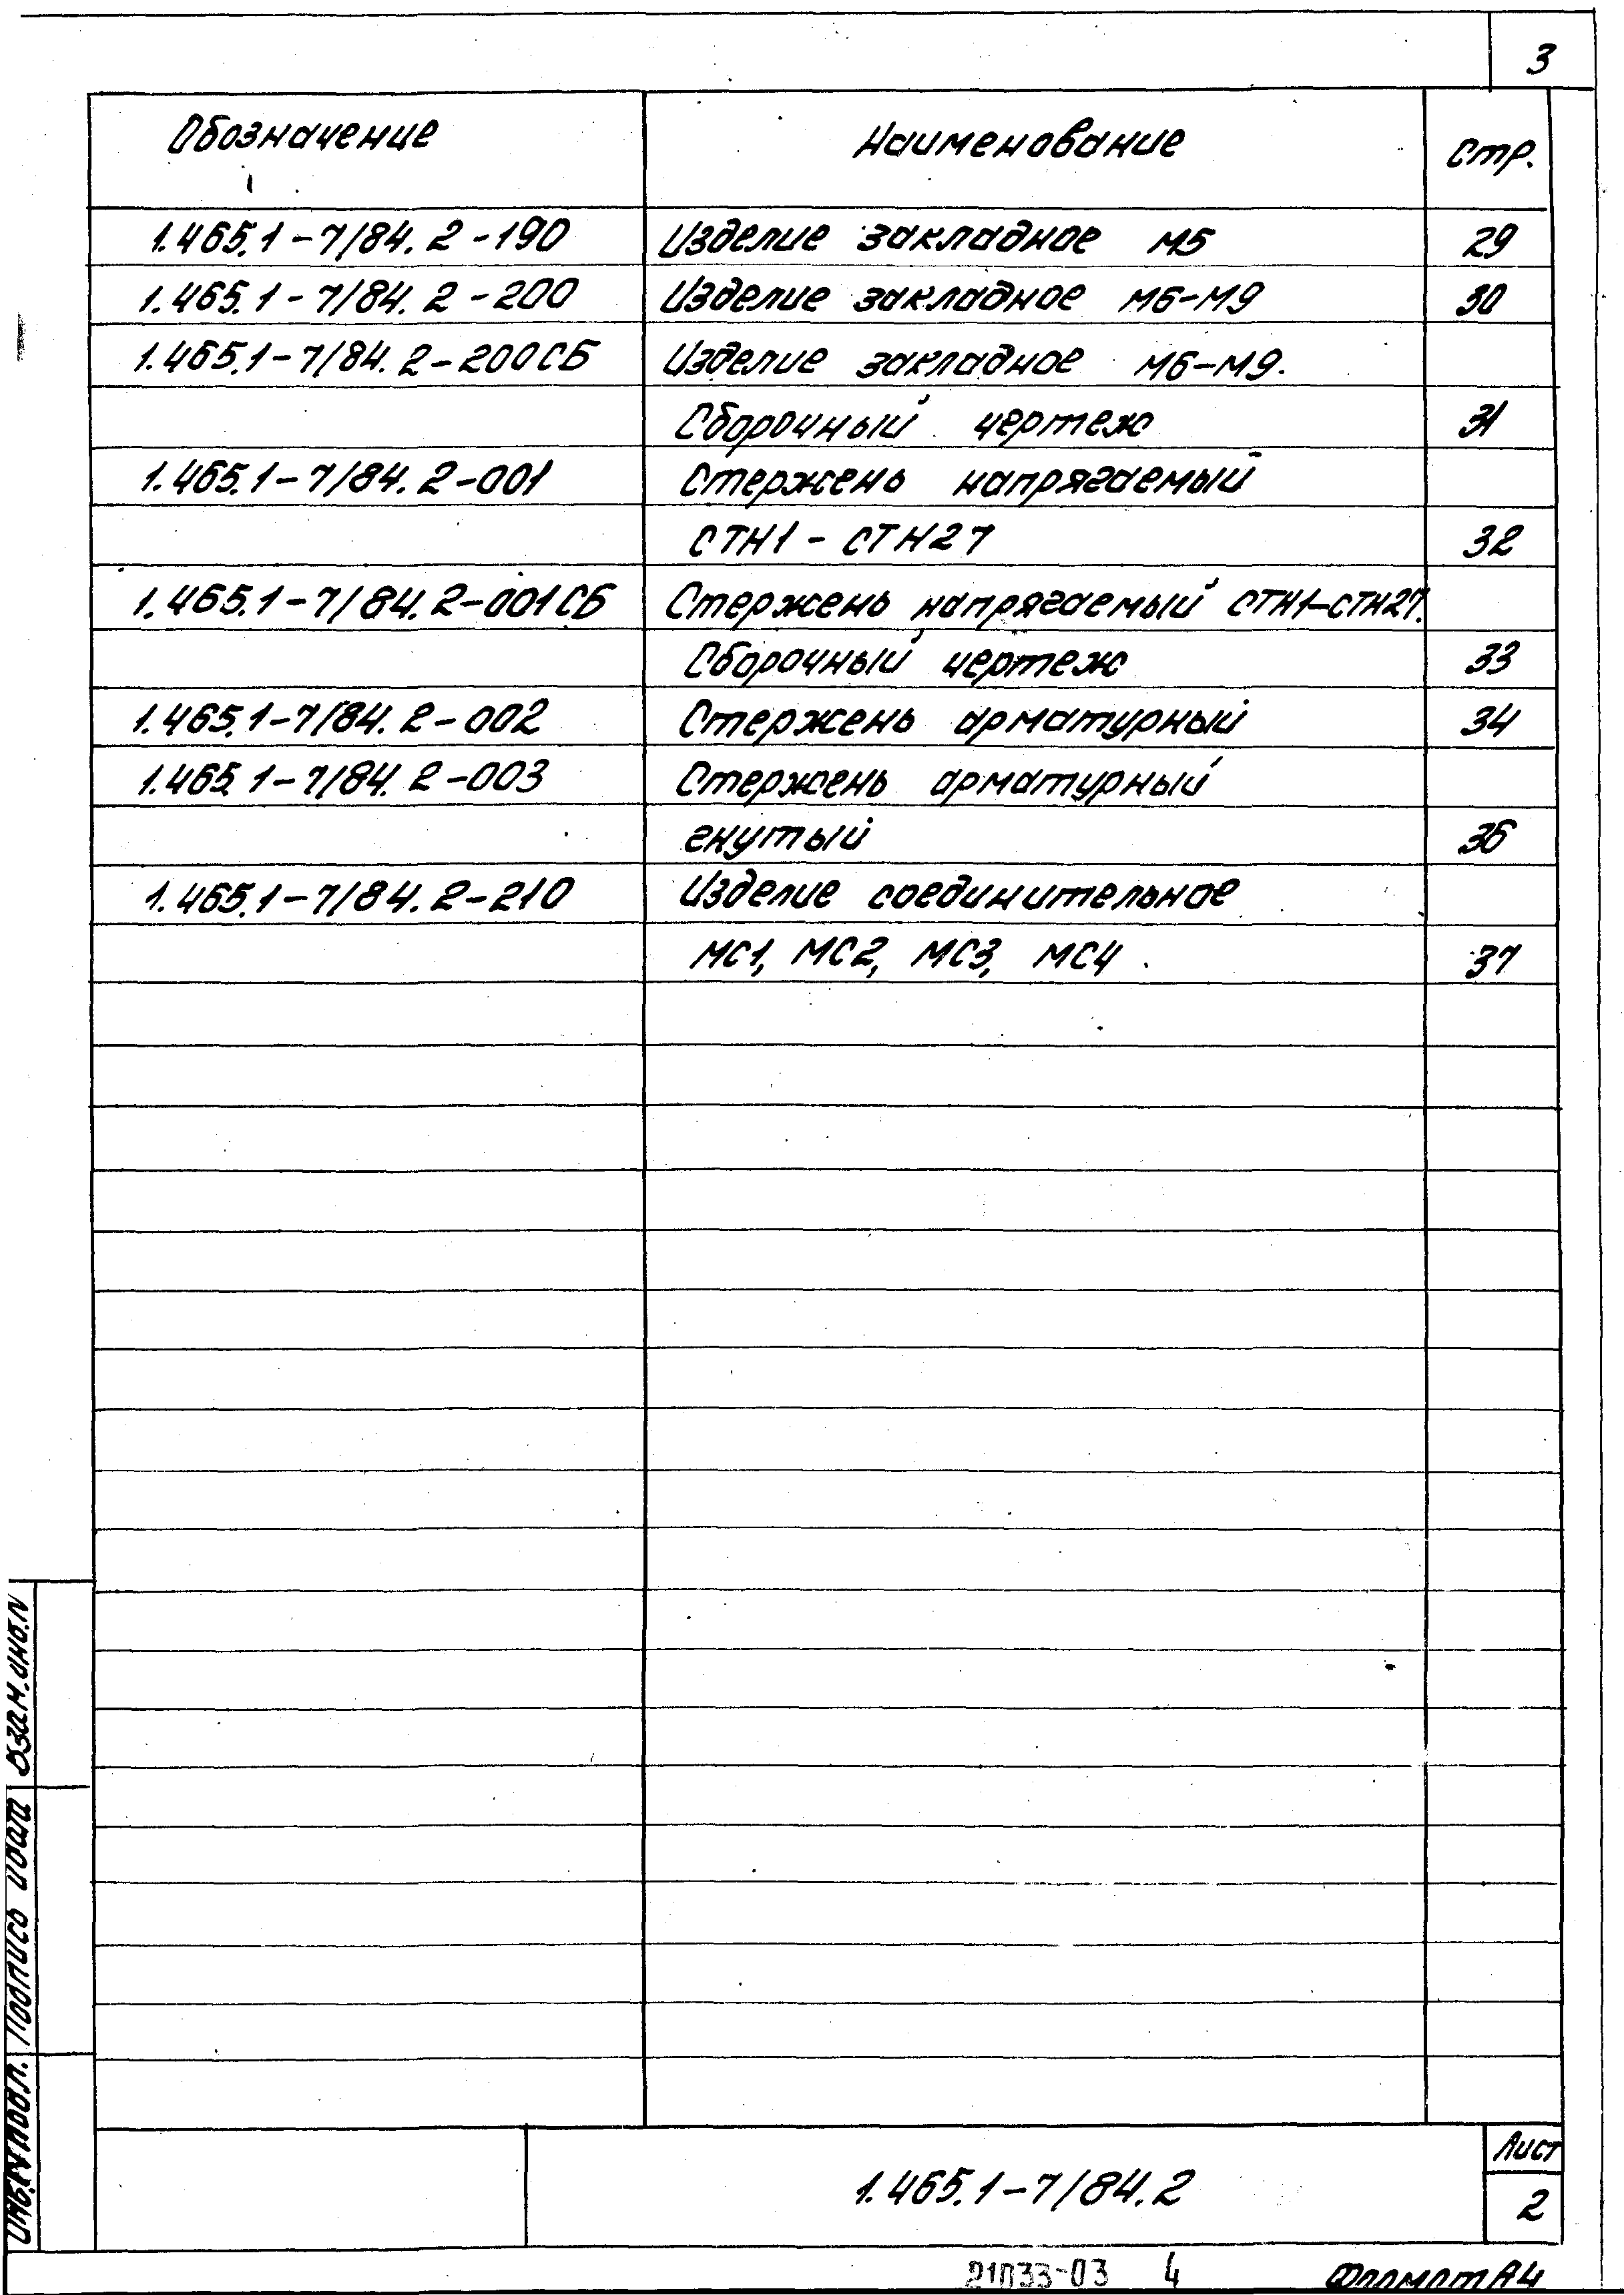 3
Обозначение Наименование Стр.
1.465.1-7/84.2-190 Изделие закладное М5 29
1.465.1-7/84.2-200 Изделие закладное М6-М9 30
1.465.1-7/84.2-200СБ Изделие закладное М6-М9.
Сборочный чертеж 31
1.465.1-7/84.2-001 Стержень напрягаемый
СТН1-СТН27 32
1.465.1-7/84.2-001СБ Стержень напрягаемый СТН1-СТН27.
Сборочный чертеж 33
1.465.1-7/84.2-002 Стержень арматурный 34
1.465.1-7/84.2-003 Стержень арматурный
гнутый 36
1.465.1-7/84.2-210 Изделие соединительное
МС1, МС2, МС3, МС4 37
Взам.инв.N
Подпись и дат
Инв.N подл.
1.465.1-7/84.2
Лист
2
21033-03 4 Формат А4